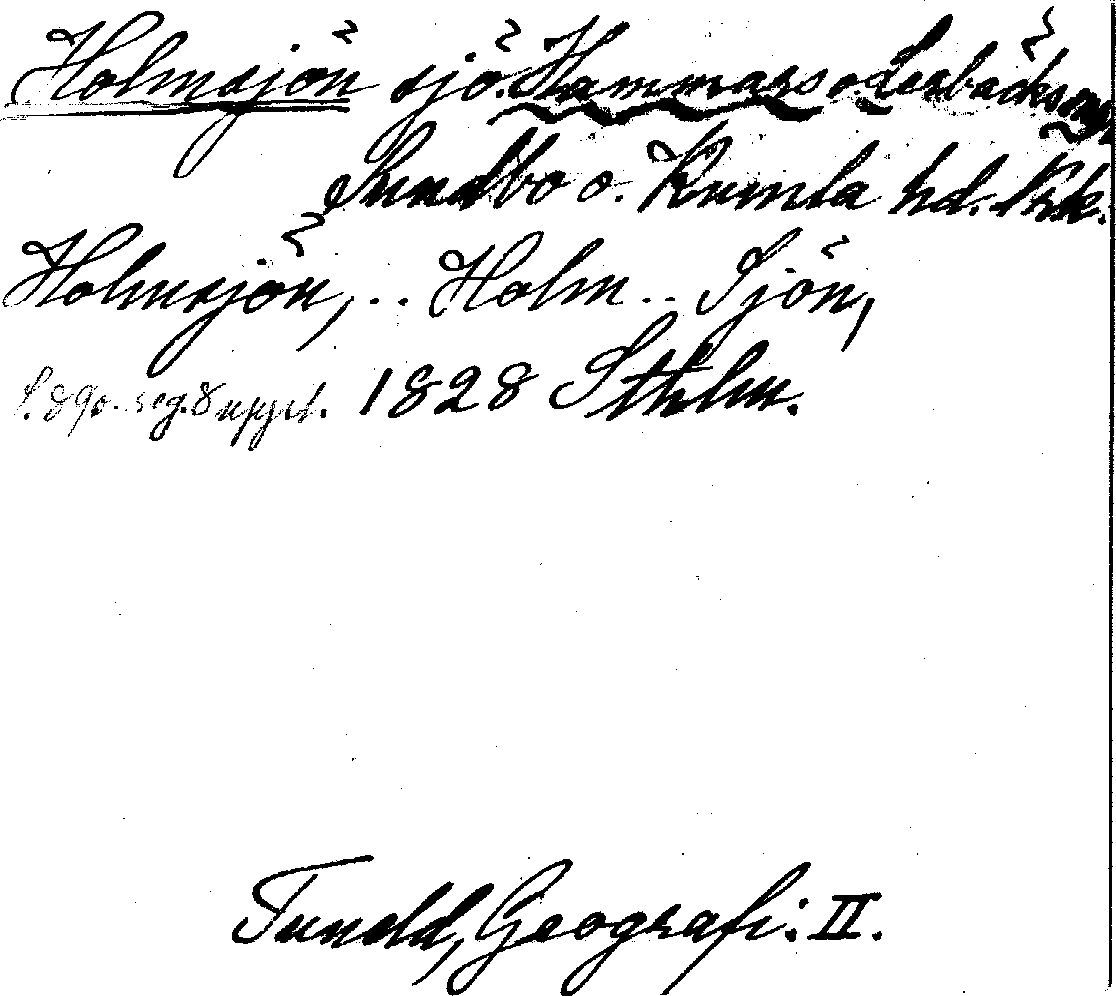 Holmsjön sjö. Hammars o. Lerbäcks snr
Sundbo o. Kumla hd. Nrk.
Holmsjön, .. Holm .. Sjön,
S. 890. reg. 8 uppl. 1828 Sthlm.
Tuneld, Geografi: II.